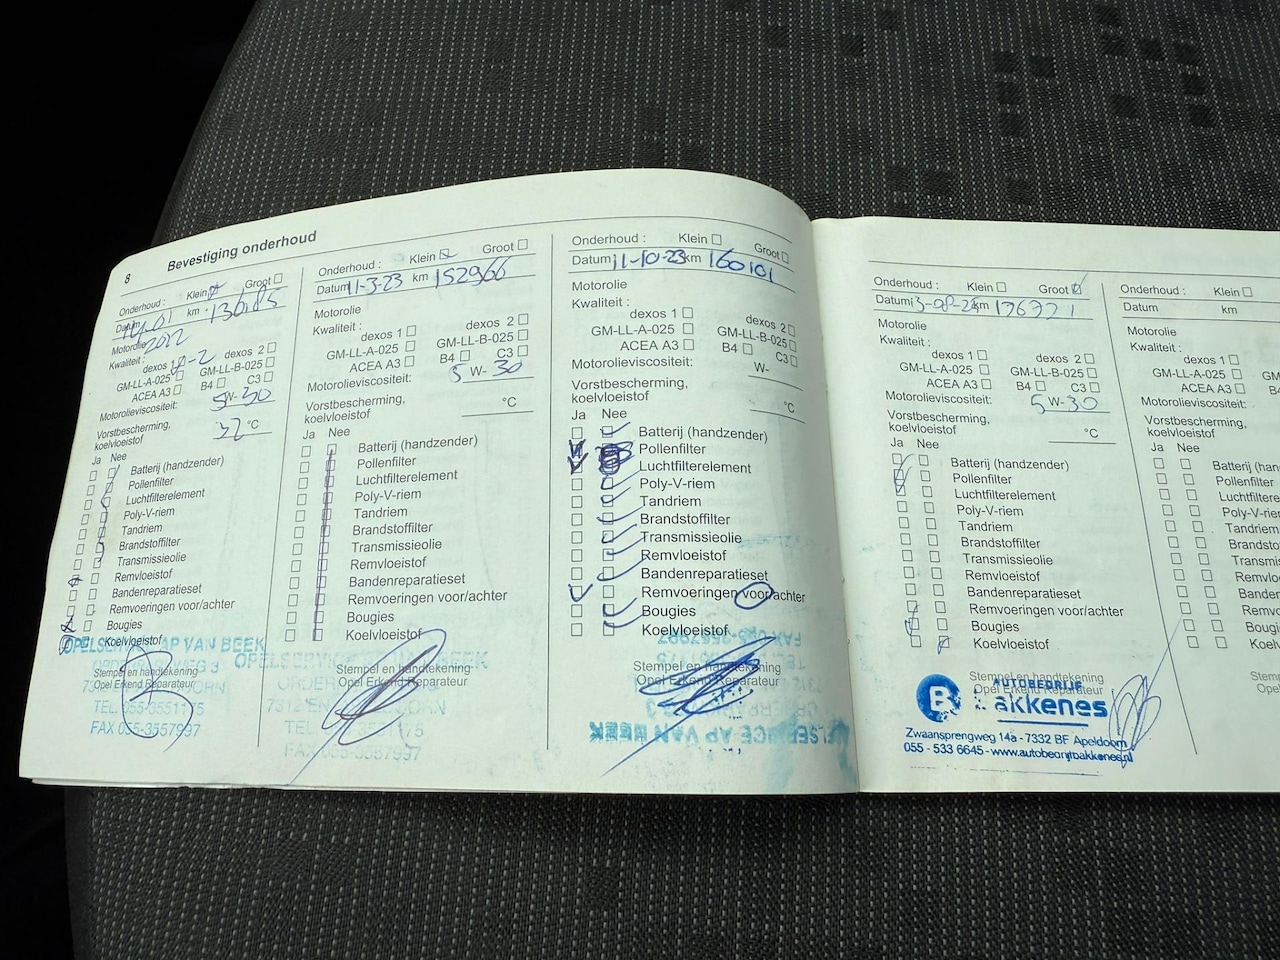 8 Bevestiging onderhoud
Onderhoud : Klein Groot
Datum 14-01 km 136185
2022
Motorolie
Kwaliteit :
dexos 1 dexos 2
GM-LL-A-025 GM-LL-B-025
ACEA A3 B4 C3
Motorolieviscositeit: 5W-30
Vorstbescherming,
koelvloeistof 32 °C
Ja Nee
Batterij (handzender)
Pollenfilter
Luchtfilterelement
Poly-V-riem
Tandriem
Brandstoffilter
Transmissieolie
Remvloeistof
Bandenreparatieset
Remvoeringen voor/achter
Bougies
Koelvloeistof
Stempel en handtekening
Opel Erkend Reparateur
OPELSERVICE AP VAN BEEK
TEL 055-3551175
FAX 055-3557997
Onderhoud : Klein Groot
Datum 11-3-23 km 152966
Motorolie
Kwaliteit :
dexos 1 dexos 2
GM-LL-A-025 GM-LL-B-025
ACEA A3 B4 C3
Motorolieviscositeit: 5 W- 30
Vorstbescherming,
koelvloeistof °C
Ja Nee
Batterij (handzender)
Pollenfilter
Luchtfilterelement
Poly-V-riem
Tandriem
Brandstoffilter
Transmissieolie
Remvloeistof
Bandenreparatieset
Remvoeringen voor/achter
Bougies
Koelvloeistof
Stempel en handtekening
Opel Erkend Reparateur
OPELSERVICE AP VAN BEEK
FAX 055-3557997
Onderhoud : Klein Groot
Datum 11-10-23 km 160101
Motorolie
Kwaliteit :
dexos 1 dexos 2
GM-LL-A-025 GM-LL-B-025
ACEA A3 B4 C3
Motorolieviscositeit: W-
Vorstbescherming,
koelvloeistof °C
Ja Nee
Batterij (handzender)
Pollenfilter
Luchtfilterelement
Poly-V-riem
Tandriem
Brandstoffilter
Transmissieolie
Remvloeistof
Bandenreparatieset
Remvoeringen voor/achter
Bougies
Koelvloeistof
Stempel en handtekening
Opel Erkend Reparateur
OPELSERVICE AP VAN BEEK
FAX 055-3557997
Onderhoud : Klein Groot
Datum 13-08-24 km 176321
Motorolie
Kwaliteit :
dexos 1 dexos 2
GM-LL-A-025 GM-LL-B-025
ACEA A3 B4 C3
Motorolieviscositeit: 5 W-30
Vorstbescherming,
koelvloeistof °C
Ja Nee
Batterij (handzender)
Pollenfilter
Luchtfilterelement
Poly-V-riem
Tandriem
Brandstoffilter
Transmissieolie
Remvloeistof
Bandenreparatieset
Remvoeringen voor/achter
Bougies
Koelvloeistof
Stempel en handtekening
Opel Erkend Reparateur
B AUTOBEDRIJF
Bakkenes
Zwaansprengweg 14a - 7332 BF Apeldoorn
055 - 533 6645 - www.autobedrijfbakkenes.nl
Onderhoud : Klein
Datum km
Motorolie
Kwaliteit :
dexos 1
GM-LL-A-025 GM
ACEA A3 B4
Motorolieviscositeit:
Vorstbescherming,
koelvloeistof
Ja Nee
Batterij (han
Pollenfilter
Luchtfiltere
Poly-V-rie
Tandriem
Brandsto
Transmis
Remvlo
Banden
Remvo
Bougi
Koelv
Stemp
Opel